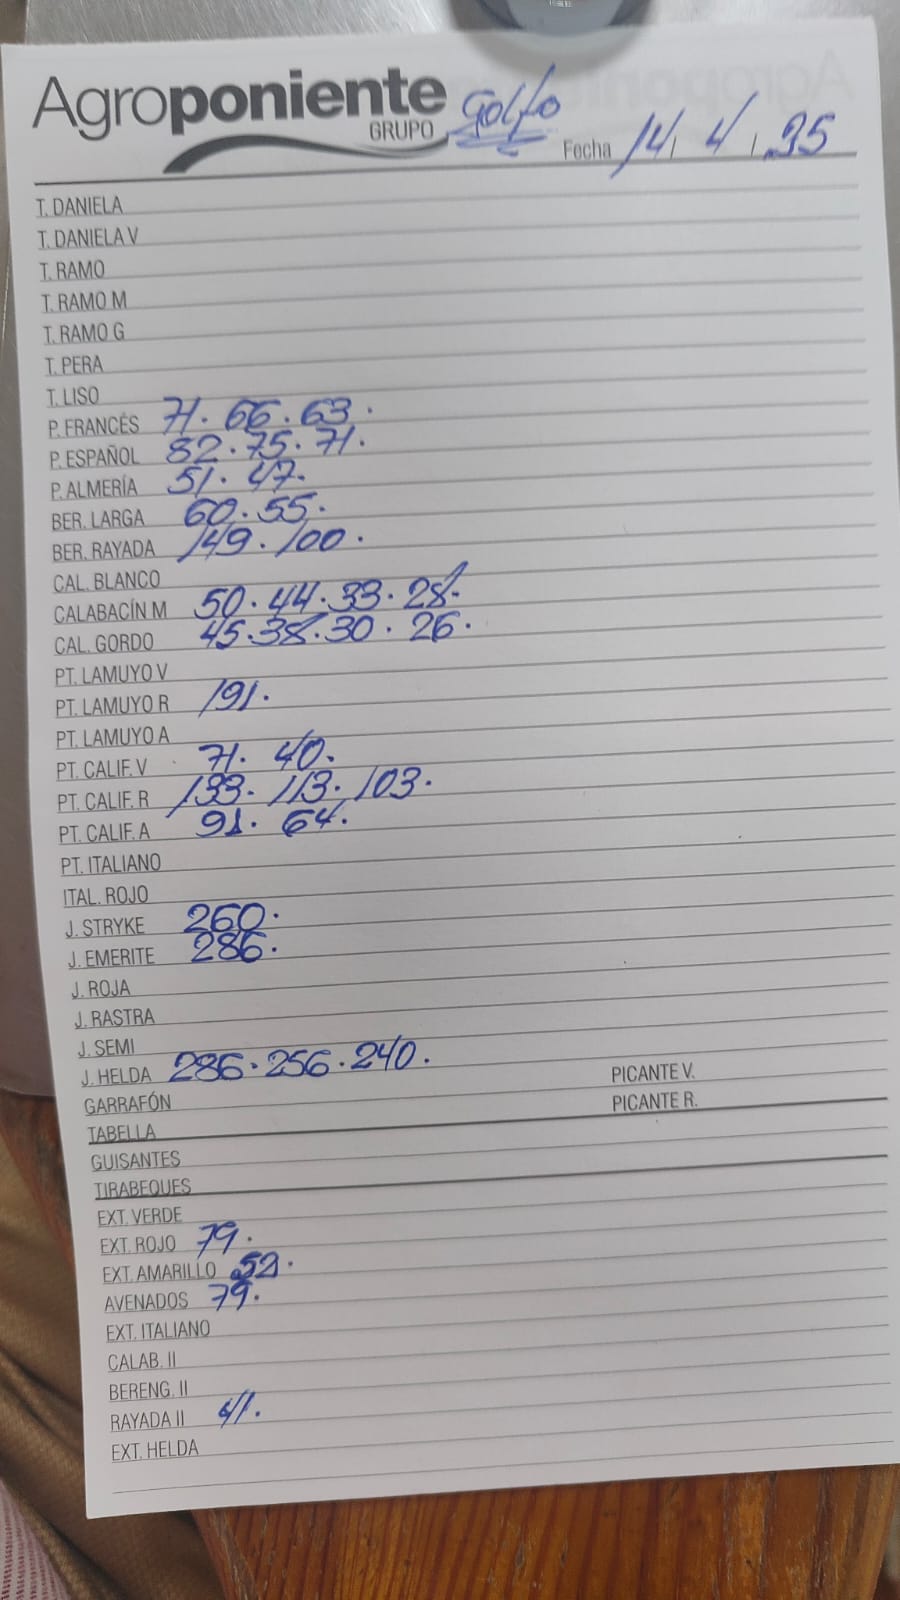 Agroponiente Golfo
GRUPO
Fecha 14, 4, 25
T. DANELA
T. DANIELA V
T. RAMO
T. RAMO M
T. RAMO G
T. PERA
T. LISO
P. FRANCÉS 71. 66. 63.
P. ESPAÑOL 82. 75. 71.
P. ALMERÍA 51. 47.
BER. LARGA 60. 55.
BER. RAYADA 149. 100.
CAL. BLANCO
CALABACÍN M 50. 44. 33. 28.
CAL. GORDO 45. 38. 30. 26.
PT. LAMUYO V
PT. LAMUYO R 191.
PT. LAMUYO A
PT. CALIF. V 71. 40.
PT. CALIF. R 133. 113. 103.
PT. CALIF. A 91. 64.
PT. ITALIANO
ITAL. ROJO
J. STRYKE 260.
J. EMERITE 286.
J. ROJA
J. RASTRA
J. SEMI
J. HELDA 286. 256. 240.
PICANTE V.
GARRAFÓN
PICANTE R.
TABELLA
GUISANTES
TIRABEQUES
EXT. VERDE
EXT. ROJO 79.
EXT. AMARILLO 52.
AVENADOS 79.
EXT. ITALIANO
CALAB. II
BERENG. II
RAYADA II 41.
EXT. HELDA